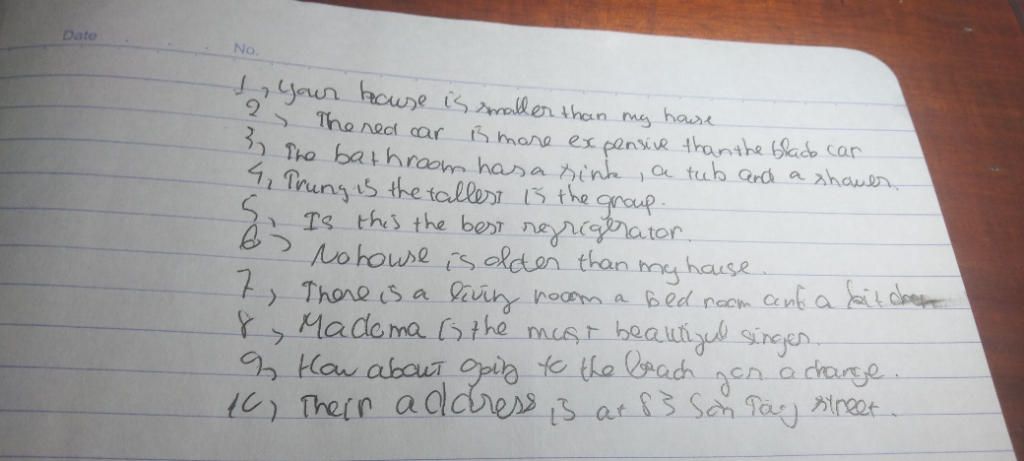 Date No.
1, Your house is smaller than my house
2, The red car is more expensive than the black car
3, The bathroom has a sink, a tub and a shower.
4, Trung is the tallest is the group.
5, Is this the best refrigerator.
6, No house is older than my house.
7, There is a living room a bed room and a kitchen
8, Madoma is the most beautiful singer.
9, How about going to the beach for a change.
10, Their address is at 83 Son Tay street.